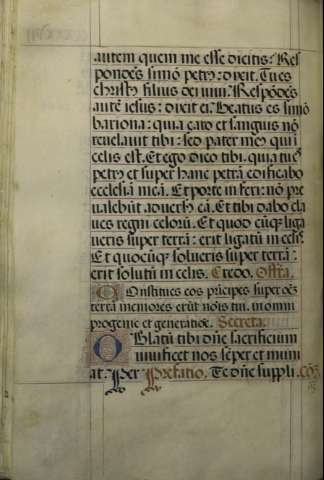 autem quem me esse dicitis: Res
pondēs simō petrꝰ: dixit. Tu es
christꝰ filius dei uiui. Respōdēs
autē iesus: dixit ei. Beatus es simō
bariona: quia caro et sanguis nō
reuelauit tibi: sed pater meꝰ qui ī
celis est. Et ego dico tibi. quia tu es
petrꝰ et super hanc petrā edificabo
ecclesiā meā. Et porte inferi: nō pre
ualebūt aduersꝰ eā. Et tibi dabo cla
ues regni celorū. Et quod cūqꝫ liga
ueris super terrā: erit ligatū in celis.
Et quocūqꝫ solueris super terrā:
erit solutū in celis. Credo. Offrā.
Constitues eos prīcipes super oēꝫ
terrā memores erūt nōis tui. in omni
progenie et generatiōe. Secreta.
Oblatū tibi dn̄e sacrificium
uiuificet nos sēper et muni
at. Per Prefatio. Te dn̄e suppli. Cōꝫ